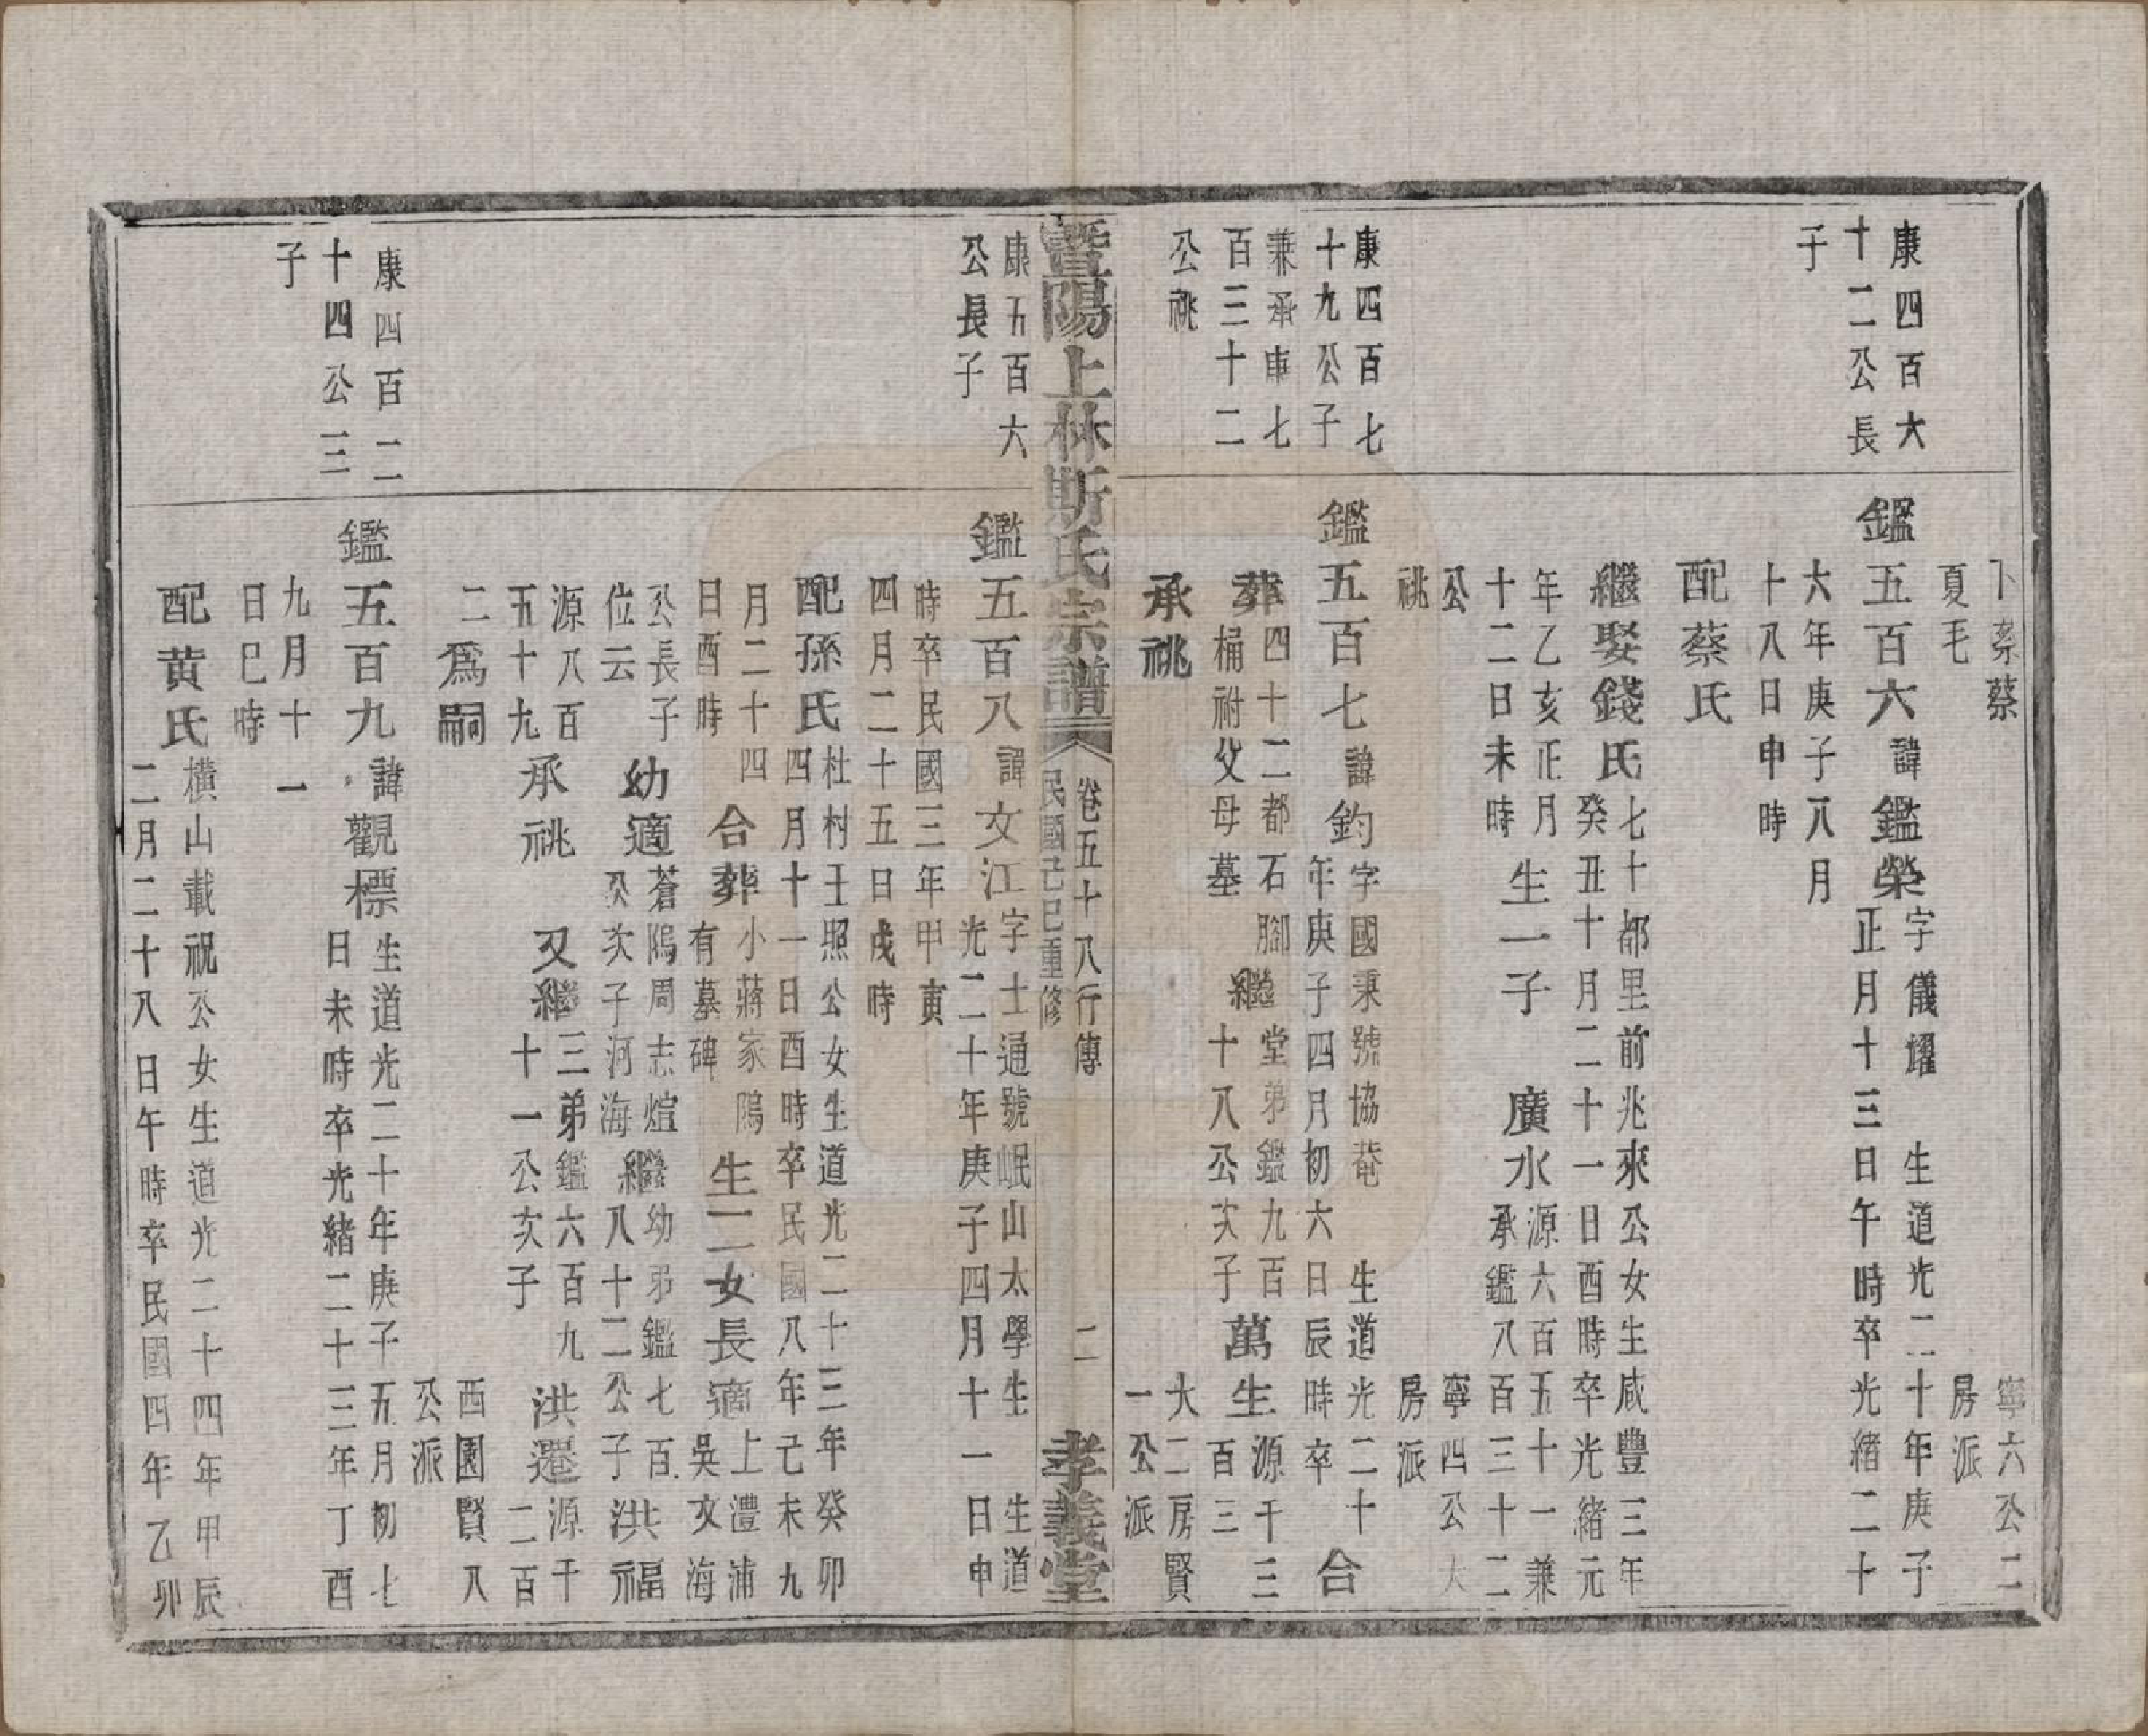 下蔡蔡 寧六公二
夏毛 房派
康四百大
十二公長
子
鑑五百六諱鑑榮字儀耀 生道光二十年庚子
正月十三日午時卒光緒二十
六年庚子八月
十八日申時
配蔡氏
繼娶錢氏七十都里前兆來公女生咸豐三年
癸丑十月二十一日酉時卒光緒元
年乙亥正月
十二日未時
生一子 廣水源六百五十一兼
承鑑八百三十二
公 寧四公大
祧 房派
康四百七
十九公子
兼承車七
百三十二
公祧
鑑五百七諱鈞字國秉號協菴 生道光二十
年庚子四月初六日辰時卒 合
葬四十二都石腳
桶祔父母墓
繼堂弟鑑九百
十八公次子
萬生源千三
百三
承祧 大二房賢
一公派
暨陽上林斯氏宗譜 卷五十八行傳 二 孝義堂
民國己巳重修
康五百六
公長子
鑑五百八諱文江字士通號岷山太學生 生道
光二十年庚子四月十一日申
時卒民國三年甲寅
四月二十五日戌時
配孫氏杜村王照公女生道光二十三年癸卯
四月十一日酉時卒民國八年己未九
月二十四
日酉時
合葬小蔣家隖
有墓碑
生二女長適上澧浦
吳文海
公長子
位云
幼適蒼隖周志煊
公次子河海
繼幼弟鑑七百
八十二公子
洪福
源八百
五十九
承祧 又繼三弟鑑六百九
十一公次子
洪遷源千
二百
二爲嗣 西園賢八
公派
康四百二
十四公三
子
鑑五百九諱觀標生道光二十年庚子五月初七
日未時卒光緒二十三年丁酉
九月十一
日巳時
配黄氏橫山載祝公女生道光二十四年甲辰
二月二十八日午時卒民國四年乙卯